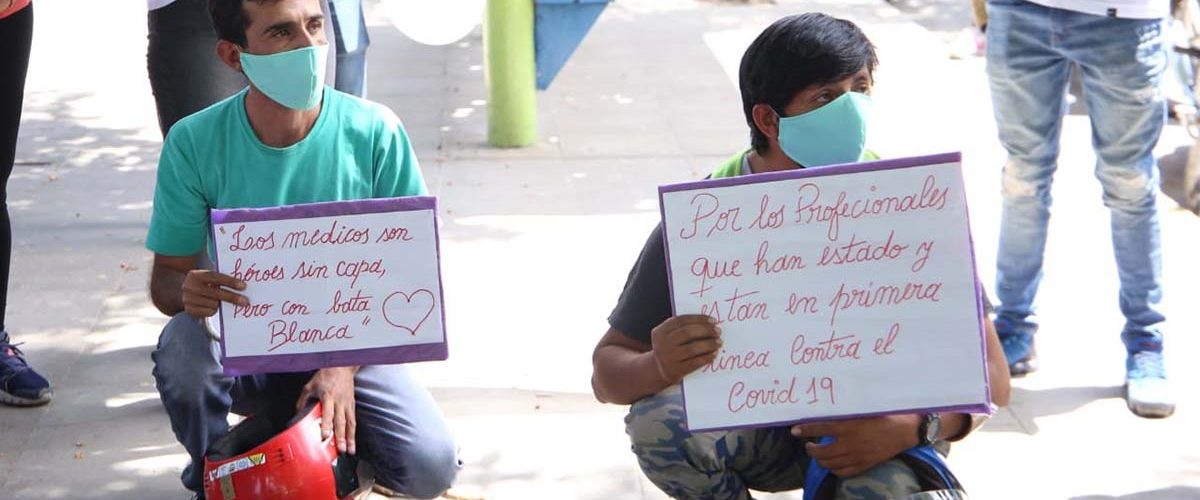 "Los medicos son
héroes sin capa,
pero con bata
Blanca"
Por los Profecionales
que han estado y
estan en primera
linea Contra el
Covid 19